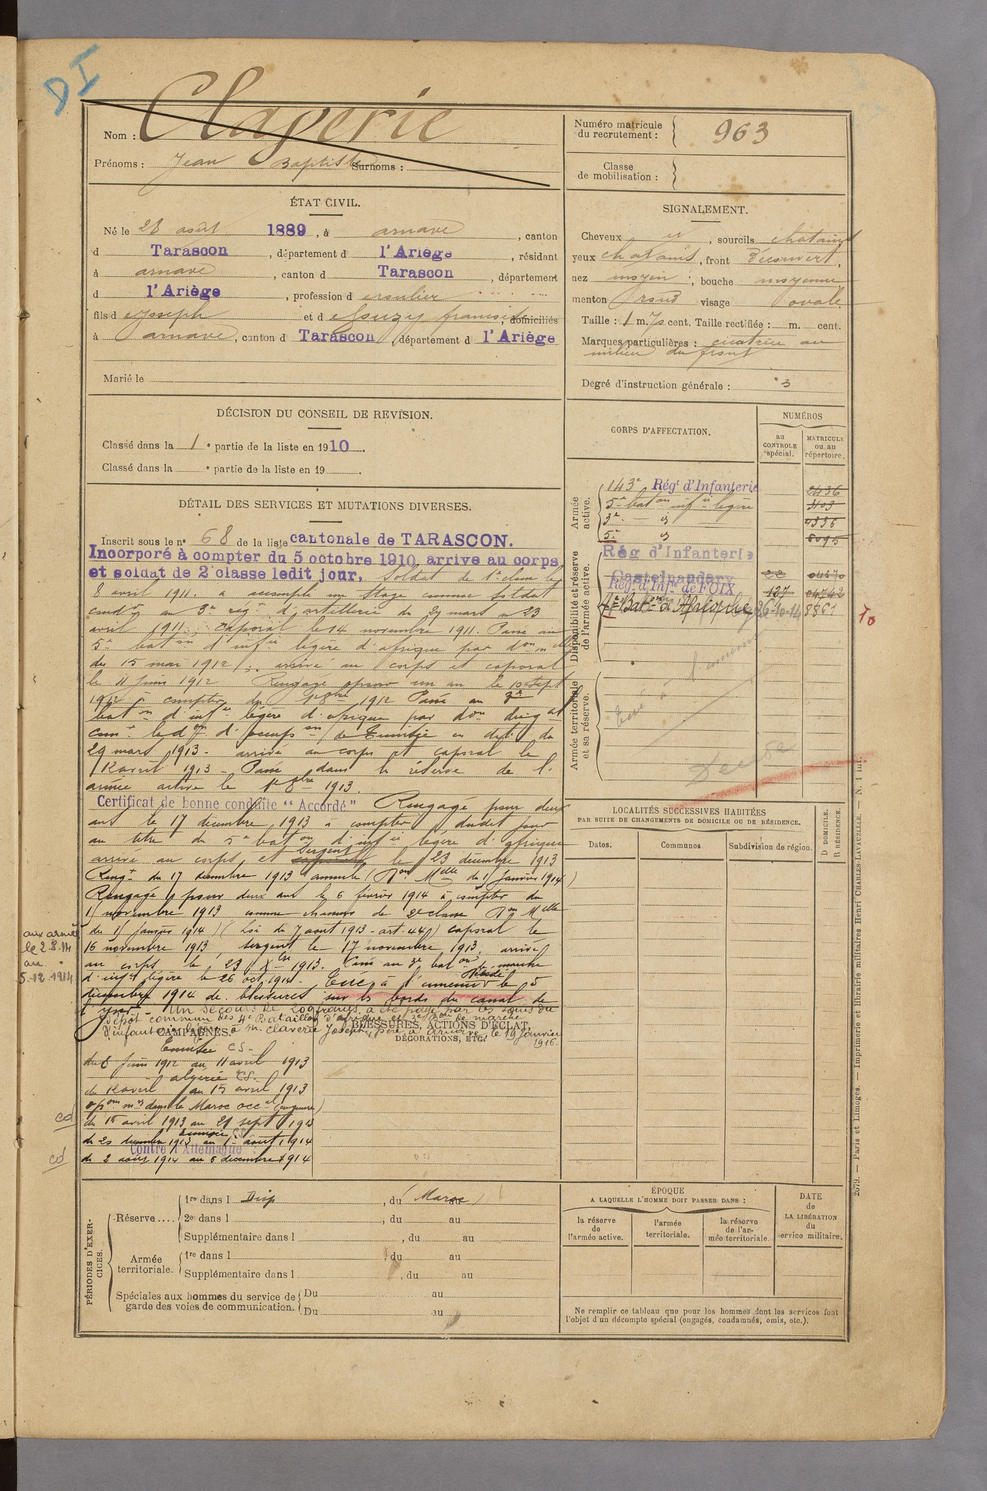 DI
Nom : Claverie
Prénoms : Jean Baptiste Surnoms :
Numéro matricule du recrutement : 963
Classe de mobilisation :
ÉTAT CIVIL.
Né le 28 août 1889, à arnave, canton
d Tarascon, département d l'Ariège, résidant
à arnave, canton d Tarascon, département
d l'Ariège, profession d
fils d Joseph et d françoise, domiciliés
à arnave, canton d Tarascon, département d l'Ariège
Marié le
SIGNALEMENT.
Cheveux et, sourcils chatains
yeux chatains, front découvert,
nez moyen, bouche moyenne
menton rond visage ovale
Taille : 1 m. 70 cent. Taille rectifiée : m. cent.
Marques particulières : cicatrice au
milieu du front
Degré d'instruction générale : 3
DÉCISION DU CONSEIL DE REVISION.
Classé dans la 1e partie de la liste en 1910
Classé dans la e partie de la liste en 19
DÉTAIL DES SERVICES ET MUTATIONS DIVERSES.
Inscrit sous le no 68 de la liste cantonale de TARASCON.
Incorporé à compter du 5 octobre 1910, arrive au corps
et soldat de 2e classe ledit jour. Soldat de 1e classe le
8 avril 1911. a accompli un stage comme soldat
au 3e reg. d'artillerie du 29 mars au 23
avril 1911. Caporal le 14 novembre 1911. Passé au
5e baton d'infie légère d'afrique par don
du 15 mai 1912; arrivé au corps et caporal
le 11 juin 1912 Rengagé pour un an le sept
1912 à compter du 1912 Passé au 3e
baton d'infie légère d'afrique par don
de Tunisie en date du
29 mars 1913 - arrivé au corps et caporal le
avril 1913 - Passé dans la réserve de l'
armée active le 1er 8bre 1913.
Certificat de bonne conduite "Accordé" Rengagé pour deux
ans le 17 décembre 1913 à compter dudit jour
au titre du 5e baton d'infie légère d'afrique
arrivé au corps, et sergent le 23 décembre 1913
Rengt du 17 décembre 1913 annulé (Don Melle du 1 janvier 1914)
Rengagé pour deux ans le 6 février 1914 à compter du
1 novembre 1913 comme chasseur de 2e classe Don Melle
du janvier 1914) (Loi de 7 aout 1913 - art. 44) caporal le
16 novembre 1913, sergent le 17 novembre 1913, arrivé
au corps le 23 Xbre 1913. Passé au 3e baton de marche
d'infie légère le 26 oct. 1914. Tué à l'ennemi le 5
décembre 1914 de blessures sur les bords du canal de
l'yser - Un secours de 150 francs a été payé par les soins du
dépot commun des Bataillon d'afrique et Bon de marche
d'infanterie légère à M. Claverie Joseph, père à Arnave, le 19 janvier
1916.
aux armées
le 2.8.14
au
5.12.1914
CAMPAGNES.
Tunisie CS-
du 8 juin 1912 au 11 avril 1913
algérie CS-
de avril au 15 avril 1913
opons mres dans le Maroc occal (guerre)
du 16 avril 1913 au 21 sept 1913
Tunisie CS
du 23 décembre 1913 au 1er août 1914
Contre l'Allemagne :
du 2 août 1914 au 5 décembre 1914
cd
cd
BLESSURES, ACTIONS D'ÉCLAT,
DÉCORATIONS, ETC.
CORPS D'AFFECTATION.
NUMÉROS
au CONTROLE spécial.
MATRICULE ou au répertoire.
Armée active.
143e Régt d'Infanterie 2436
5e baton infie légère 403
3e - d° 0336
5e d° 8095
Disponibilité et réserve de l'armée active.
Rég d'Infanterie
Castelnaudary 22
Régt d'Infie de FOIX 127 04742
Baton d'Afrique 26-10-14 8861
To
Armée territoriale et sa réserve.
Tué à l'ennemi
Décédé
LOCALITÉS SUCCESSIVES HABITÉES
PAR SUITE DE CHANGEMENTS DE DOMICILE OU DE RÉSIDENCE.
Dates.
Communes
Subdivision de région.
D DOMICILE.
R RÉSIDENCE.
2079. — Paris et Limoges. — Imprimerie et librairie militaires Henri CHARLES-LAVAUZELLE. — N. 1 inf.
PÉRIODES D'EXERCICES.
Réserve....
1re dans l Disp, du (Maroc) au
2e dans l, du au
Supplémentaire dans l, du au
Armée territoriale.
1re dans l du au
Supplémentaire dans l, du au
Spéciales aux hommes du service de garde des voies de communication.
Du au
Du au
ÉPOQUE
A LAQUELLE L'HOMME DOIT PASSER DANS :
la réserve de l'armée active.
l'armée territoriale.
la réserve de l'armée territoriale.
DATE de LA LIBÉRATION du service militaire.
Ne remplir ce tableau que pour les hommes dont les services font
l'objet d'un décompte spécial (engagés, condamnés, omis, etc.).